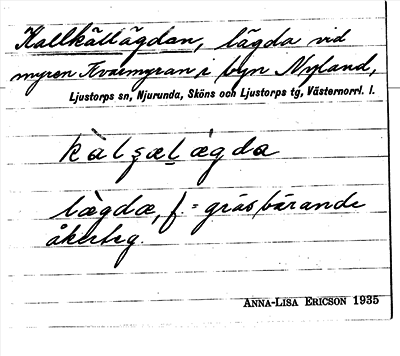 Kallkällägdan, lägda vid
myren Kvarnmyran i byn Nyland,
Ljustorps sn, Njurunda, Sköns och Ljustorps tg, Västernorrl. l.
kàlsælægda
lægdæ, f. = gräsbärande
åkerteg.
ANNA-LISA ERICSON 1935